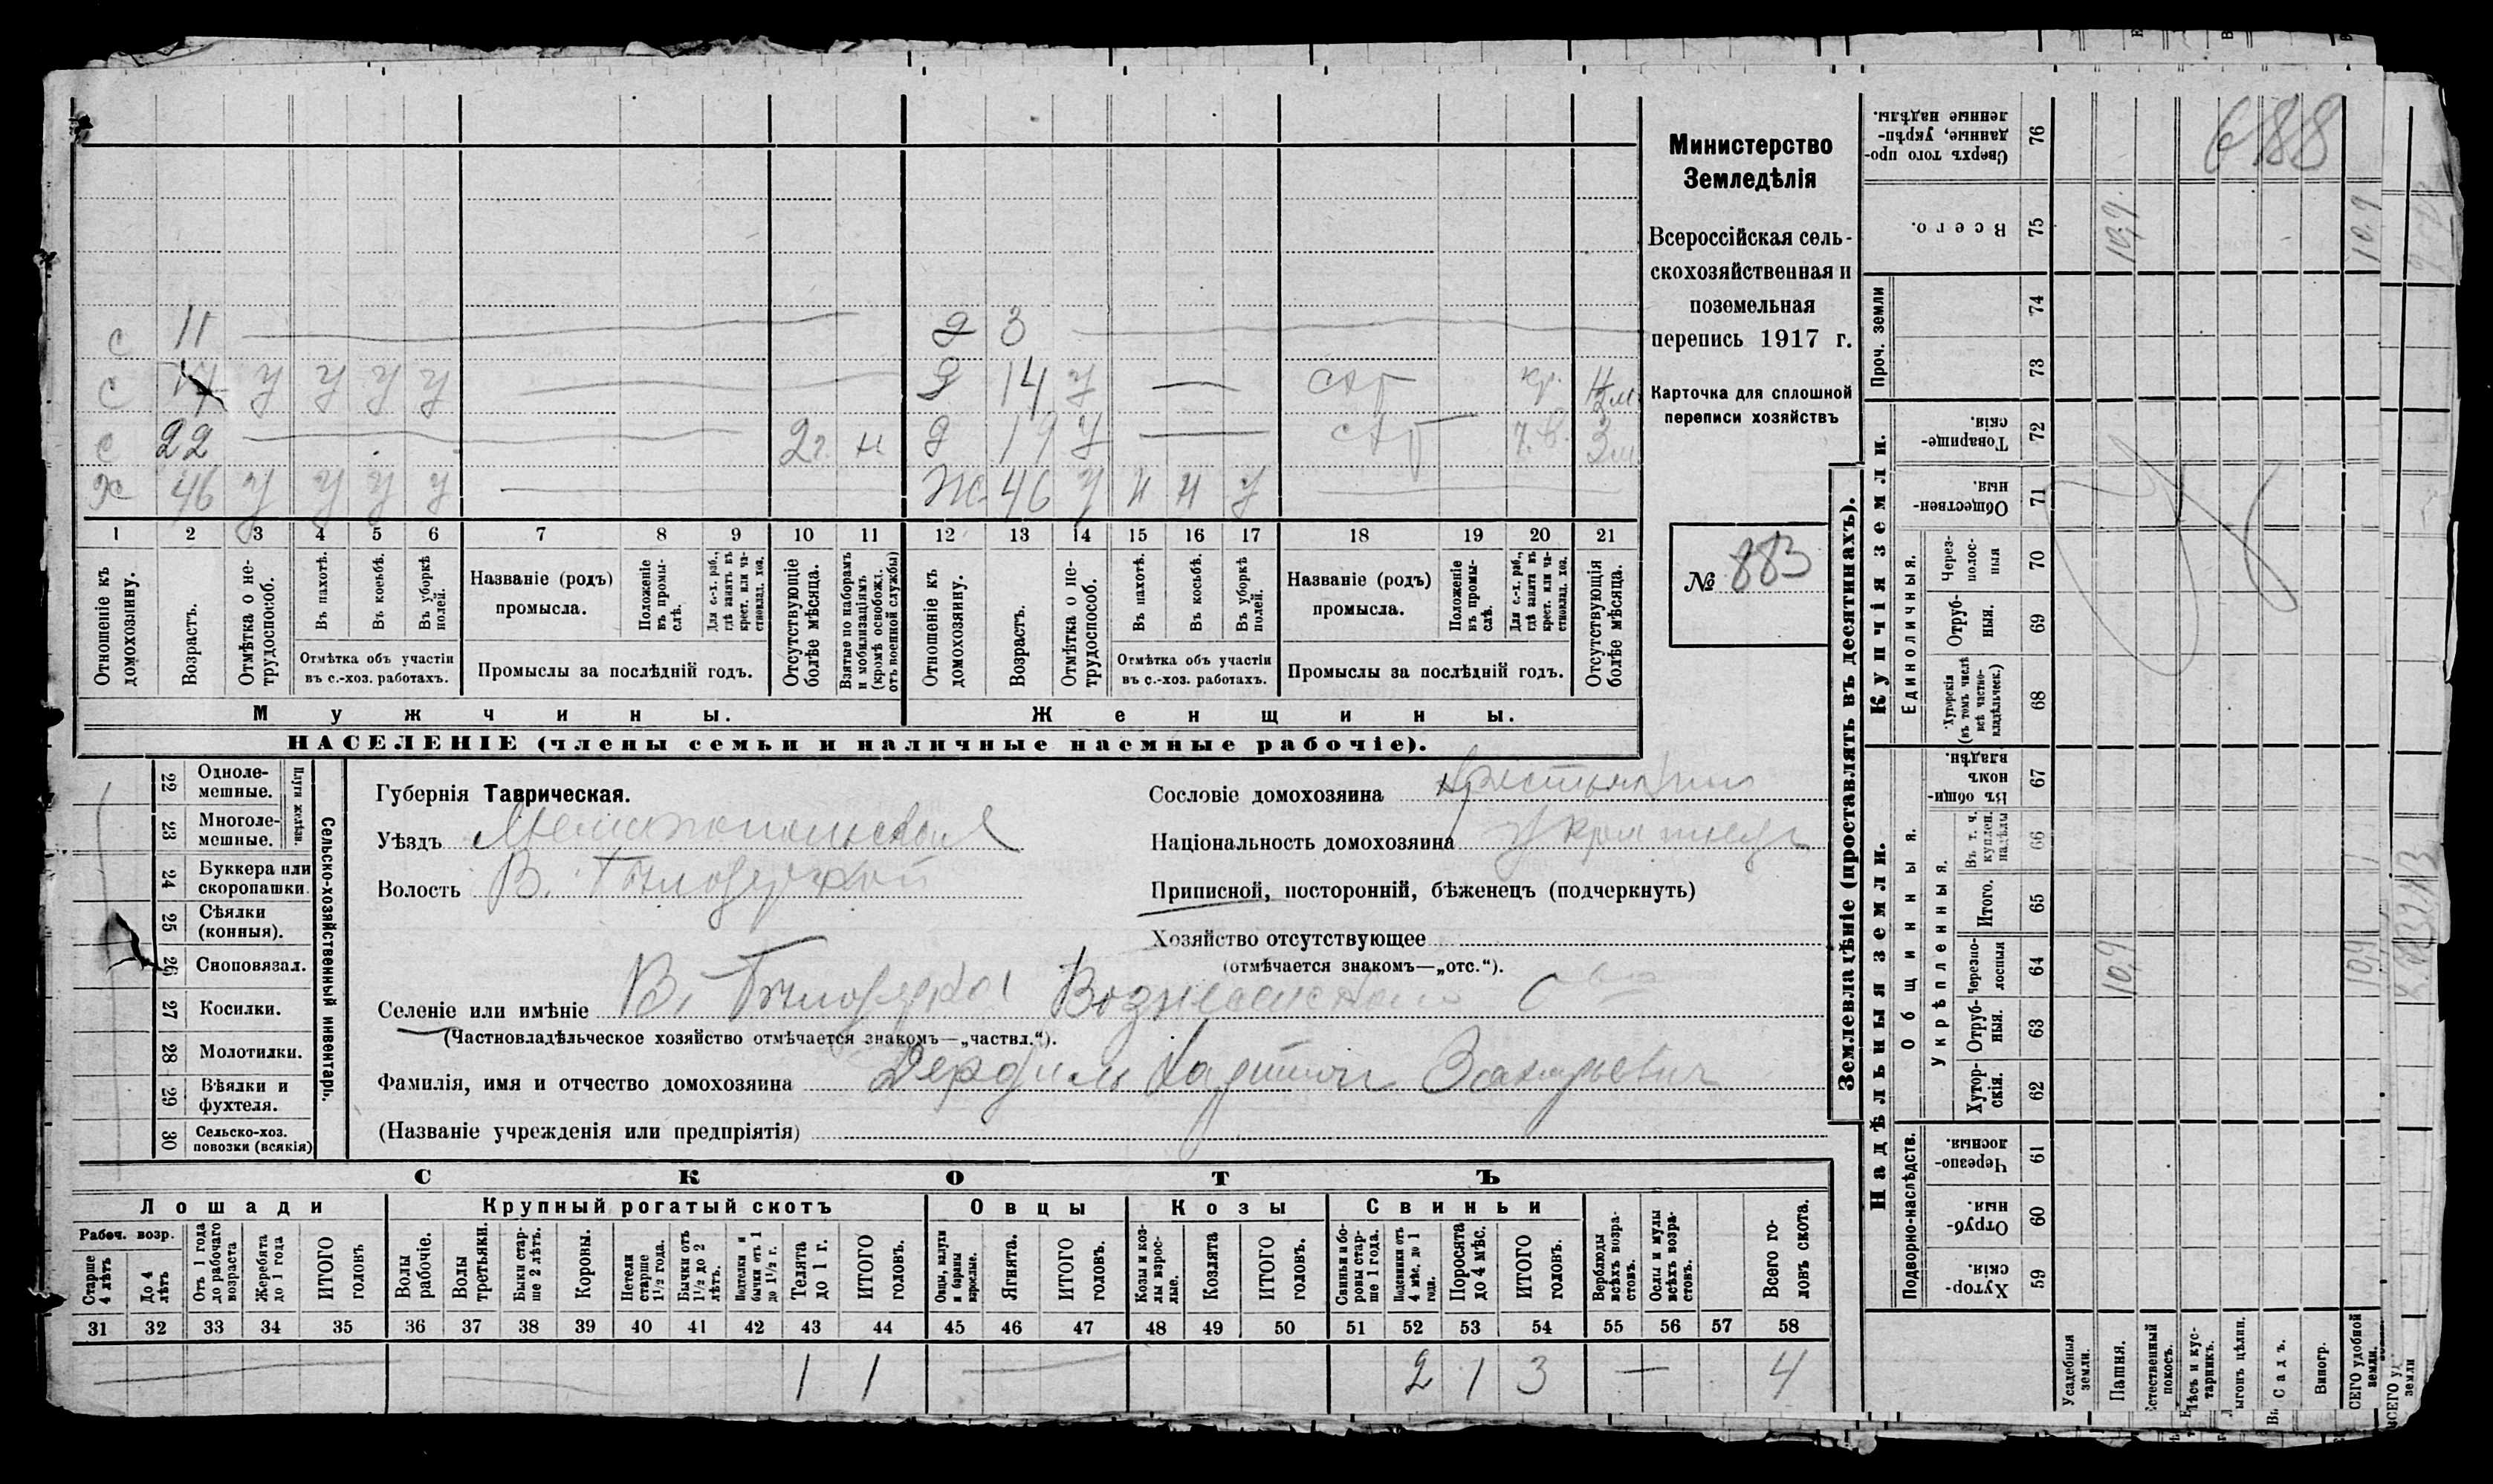 Министерство
Земледѣлія
Всероссійская сель-
скохозяйственная и
поземельная
перепись 1917 г.
Карточка для сплошной
переписи хозяйствъ
№ 883
с 11 д 3
с 17 у у у у д 14 у — кр.
с 22 2 г. н д 19 у — 3 м
х 46 у у у у Ж 46 у н н у
1 2 3 4 5 6 7 8 9 10 11 12 13 14 15 16 17 18 19 20 21
Отношеніе къ домохозяину.
Возрастъ.
Отмѣтка о не-трудоспособ.
Въ пахотѣ.
Въ косьбѣ.
Въ уборкѣ полей.
Отмѣтка объ участіи
въ с.-хоз. работахъ.
Названіе (родъ)
промысла.
Положеніе въ промы-слѣ.
Для с.-х. раб., гдѣ занятъ въ крест. или ча-стновлад. хоз.
Промыслы за послѣдній годъ.
Отсутствующіе болѣе мѣсяца.
Взятые по наборамъ и мобилизаціямъ (кромѣ освобожд. отъ военной службы)
Отношеніе къ домохозяину.
Возрастъ.
Отмѣтка о не-трудоспособ.
Въ пахотѣ.
Въ косьбѣ.
Въ уборкѣ полей.
Отмѣтка объ участіи
въ с.-хоз. работахъ.
Названіе (родъ)
промысла.
Положеніе въ промы-слѣ.
Для с.-х. раб., гдѣ занята въ крест. или ча-стновлад. хоз.
Промыслы за послѣдній годъ.
Отсутствующія болѣе мѣсяца.
Мужчины. Женщины.
НАСЕЛЕНІЕ (члены семьи и наличные наемные рабочіе).
Сельско-хозяйственный инвентарь.
Плуги желѣзн.
22 Одноле-
мешные.
23 Многоле-
мешные.
24 Буккера или
скоропашки.
25 Сѣялки
(конныя).
26 Сноповязал.
27 Косилки.
28 Молотилки.
29 Вѣялки и
фухтеля.
30 Сельско-хоз.
повозки (всякія)
Губернія Таврическая.
Уѣздъ Мелитопольскій
Волость В. Бѣлозерской
Сословіе домохозяина крестьянинъ
Національность домохозяина украинецъ
Приписной, посторонній, бѣженецъ (подчеркнуть)
Хозяйство отсутствующее
(отмѣчается знакомъ—„отс.“).
Селеніе или имѣніе В. Бѣлозерка Вознесенского о-ва
(Частновладѣльческое хозяйство отмѣчается знакомъ—„частвл.“).
Фамилія, имя и отчество домохозяина Харитон Захарьевич
(Названіе учрежденія или предпріятія)
СКОТЪ
Лошади Крупный рогатый скотъ Овцы Козы Свиньи
Рабоч. возр.
Старше 4 лѣтъ
До 4 лѣтъ
Отъ 1 года до рабочаго возраста
Жеребята до 1 года
ИТОГО головъ
Волы рабочіе.
Волы третьяки.
Быки стар-ше 2 лѣтъ.
Коровы.
Нетели старше 1½ года.
Бычки отъ 1½ до 2 лѣтъ.
Нетелки и бычки отъ 1 до 1½ г.
Телята до 1 г.
ИТОГО головъ.
Овцы, валухи и бараны взрослые.
Ягнята.
ИТОГО головъ.
Козы и коз-лы взрос-лые.
Козлята
ИТОГО головъ.
Свиньи и бо-ровы стар-ше 1 года.
Подсвинки отъ 4 мѣс. до 1 года.
Поросята до 4 мѣс.
ИТОГО головъ.
Верблюды всѣхъ возра-стовъ.
Ослы и мулы всѣхъ возра-стовъ.
Всего го-ловъ скота.
31 32 33 34 35 36 37 38 39 40 41 42 43 44 45 46 47 48 49 50 51 52 53 54 55 56 57 58
1 1 — 2 1 3 — 4
Землевладѣніе (проставлять въ десятинахъ).
Надѣльныя земли. Купчія земли. Проч. земли
Подворно-наслѣдств. Общинныя. Укрѣпленныя. Единоличныя.
59 Хутор-скія.
60 Отруб-ныя.
61 Черезпо-лосныя.
62 Хутор-скія.
63 Отруб-ныя.
64 Черезпо-лосныя
65 Итого.
66 Въ т. ч. куплен. надѣлы
67 Въ общи-номъ владѣн.
68 Хуторскія (въ томъ числѣ всѣ частно-владѣльческ.)
69 Отруб-ныя.
70 Через-полос-ныя
71 Обществен-ныя.
72 Товарище-скія.
73
74
75 Всего.
76 Сверхъ того про-данные, укрѣп-ленные надѣлы.
Усадебныя земли.
Пашня. 10,9 10,9
Естественный покосъ.
Лѣсъ и кус-тарникъ.
Выгонъ цѣлин.
Садъ.
Виногр.
ВСЕГО удобной земли. 10,9 10,9
688